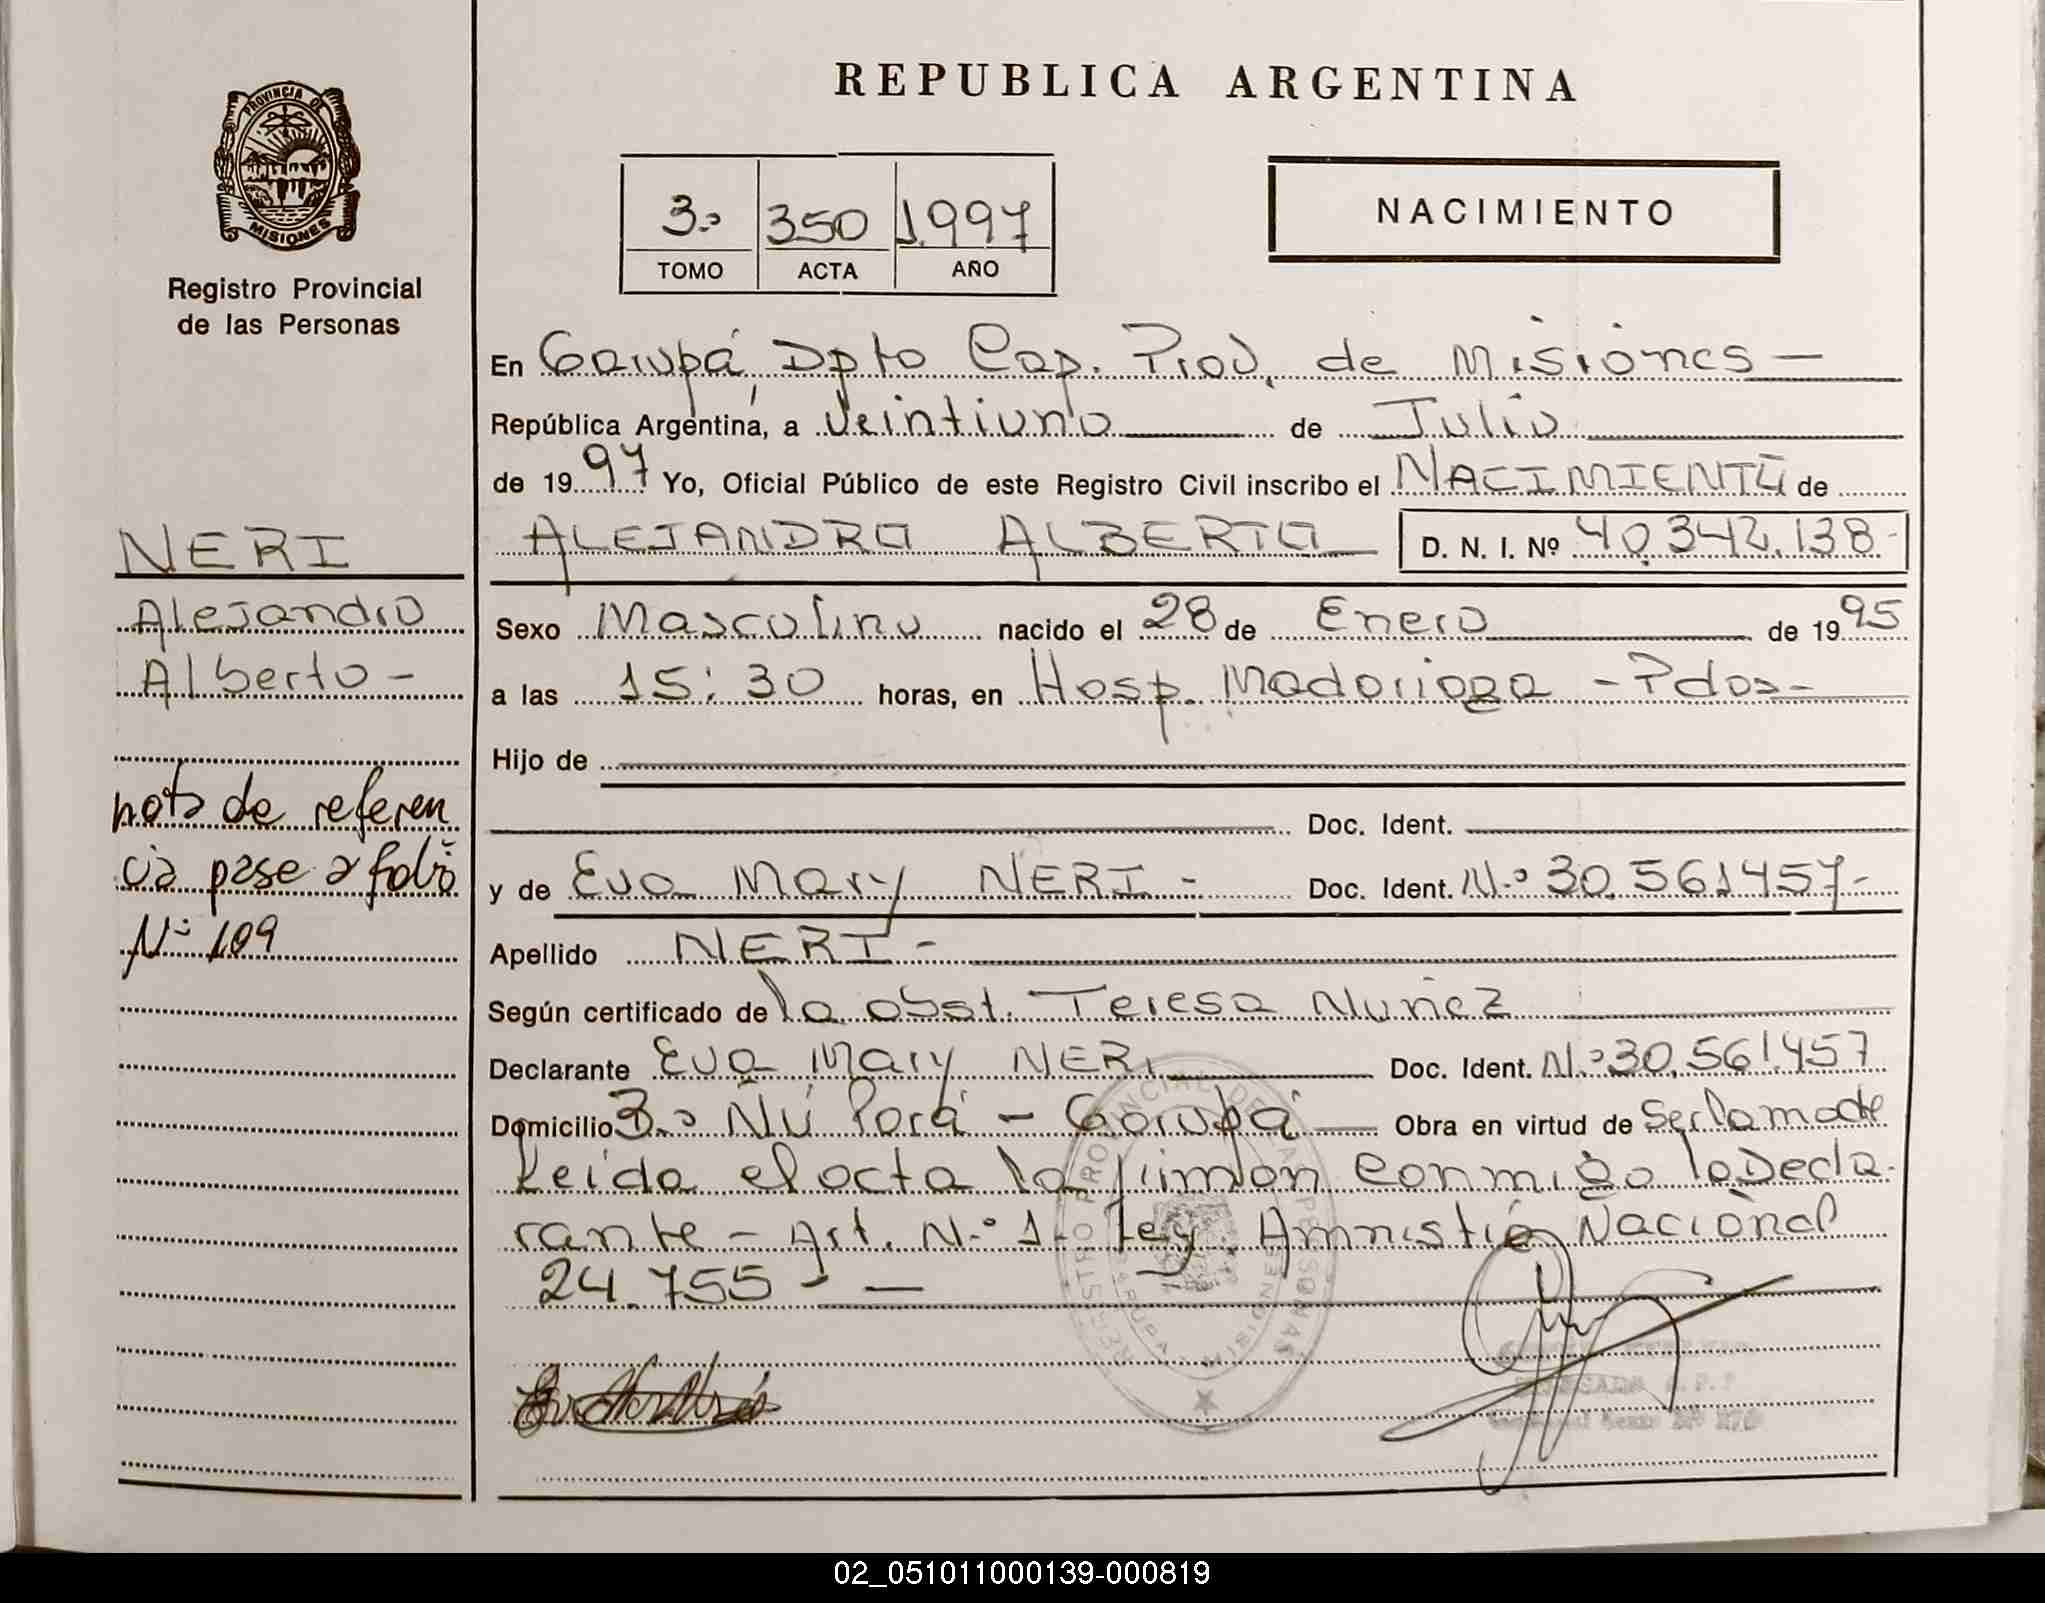 PROVINCIA DE
MISIONES
Registro Provincial
de las Personas
NERI
Alejandro
Alberto -
nota de referen
cia pase a folio
Nº 109
REPUBLICA ARGENTINA
3º 350 1.997
TOMO ACTA AÑO
NACIMIENTO
En Garupá, Dpto Cap. Prov. de Misiones —
República Argentina, a Veintiuno de Julio
de 1997 Yo, Oficial Público de este Registro Civil inscribo el NACIMIENTO de
ALEJANDRO ALBERTO D. N. I. Nº 40.342.138-
Sexo Masculino nacido el 28 de Enero de 1995
a las 15:30 horas, en Hosp. Madariaga - Pdas-
Hijo de
Doc. Ident.
y de Eva Mary NERI - Doc. Ident. N.º 30.561457-
Apellido NERI -
Según certificado de la obst. Teresa Nuñez
Declarante Eva Mary NERI Doc. Ident. N.º 30.561.457
Domicilio 3.º Ñú Porá - Garupá Obra en virtud de Ser la madre
Leida el acta la firman conmigo la Decla.
rante - Art. N.º 1- Ley Amnistía Nacional
24.755 - —
REGISTRO PROVINCIAL DE LAS PERSONAS
GARUPA MISIONES
02_051011000139-000819